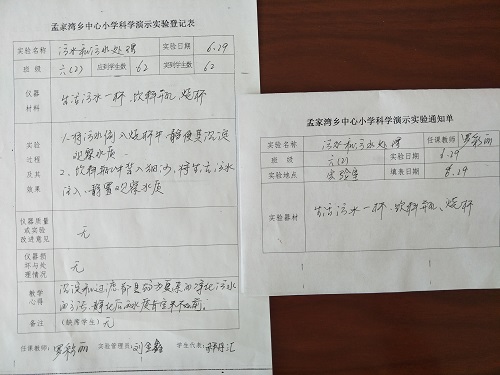 孟家湾乡中心小学科学演示实验登记表
实验名称 污水和污水处理 实验日期 6.29
班 级 六(2) 应到学生数 62 实到学生数 62
仪器材料 生活污水一杯、饮料瓶、烧杯
实验过程及其效果
1.将污水倒入烧杯中,静使其沉淀
观察水质
2、饮料瓶中装入细沙、将生活污水
注入、静置观察水质
仪器质量或实验改进意见 无
仪器损坏与处理情况 无
教学心得 沉淀和过滤都是
净化污水
的方法、净化后的水质肯定不如前。
备注 (缺席学生) 无
任课教师: 罗彩丽 实验管理员: 刘金鑫 学生代表:
孟家湾乡中心小学科学演示实验通知单
实验名称 污水和污水处理 任课教师 罗彩丽
班 级 六(2) 实验日期 6.29
实验地点 实验室 填表日期 6.29
实验器材 生活污水一杯、饮料瓶、烧杯